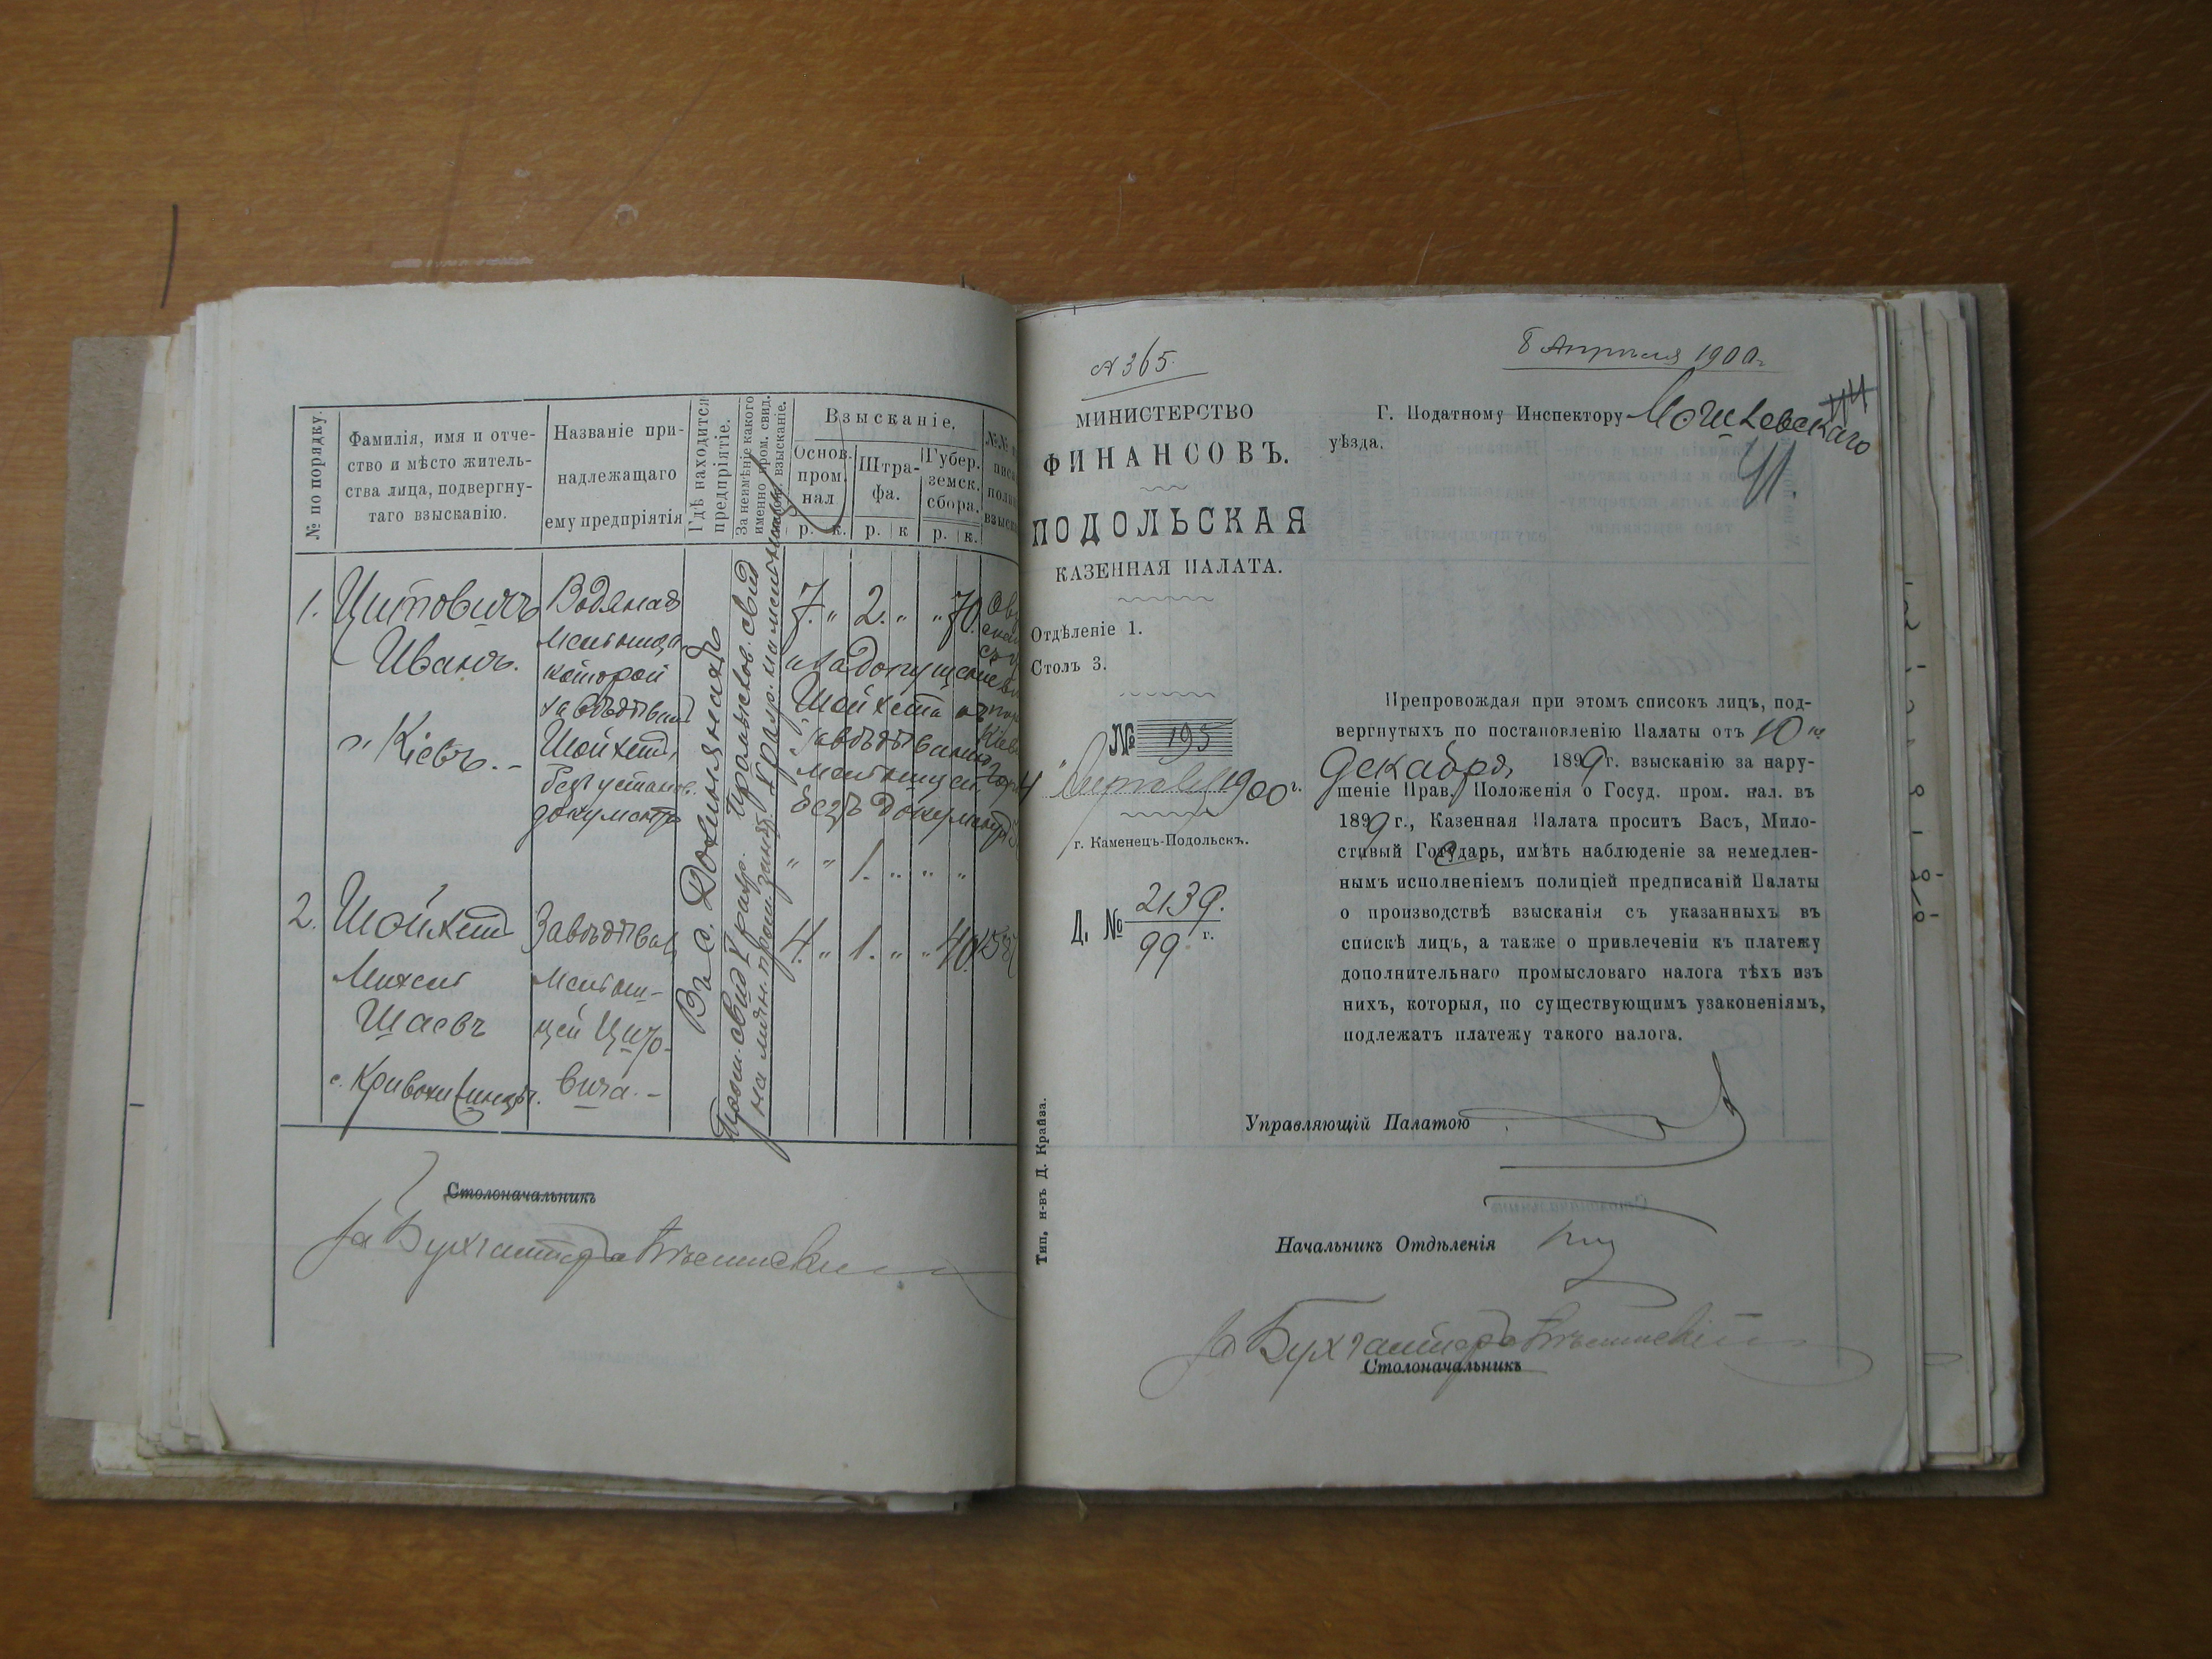 № по порядку.
Фамилія, имя и отче-
ство и мѣсто житель-
ства лица, подвергну-
таго взысканію.
Названіе при-
надлежащаго
ему предпріятія
Гдѣ находится
предпріятіе.
За неимѣніе какого
именно пром. свид.
взысканіе.
Взысканіе.
Основ.
пром.
нал
Штра-
фа.
Губер.
земск.
сбора.
р. к. р. к р. к.
1. Цитовичъ
Иванъ.
г. Кіевъ.
Водяная
мельница
которой
завѣдывает
Шойхетъ
безъ установ.
документа
Въ с. Дохилянахъ
7. " 2. " " 70.
и за допущеніе
Шойхета къ
завѣдыванію
мельницей
безъ документа
" " 1. " " "
2. Шойхет
Михель
Шаевъ
Завѣдывал
мельни-
цей Цито-
вича.
4. " 1. " " 40.
Столоначальникъ
За Бухгалтера
№ 365.
8 Апрѣля 1900 г.
МИНИСТЕРСТВО
ФИНАНСОВЪ.
ПОДОЛЬСКАЯ
КАЗЕННАЯ ПАЛАТА.
Отдѣленіе 1.
Столъ 3.
№ 195
4 1900 г.
г. Каменецъ-Подольскъ.
Д. № 2139.
99 г.
Г. Податному Инспектору Могилевскаго
уѣзда.
Препровождая при этомъ списокъ лицъ, под-
вергнутыхъ по постановленію Палаты отъ 10 го
Декабря 1899 г. взысканію за нару-
шеніе Прав. Положенія о Госуд. пром. нал. въ
1899 г., Казенная Палата проситъ Васъ, Мило-
стивый Государь, имѣть наблюденіе за немедлен-
нымъ исполненіемъ полиціей предписаній Палаты
о производствѣ взысканія съ указанныхъ въ
спискѣ лицъ, а также о привлеченіи къ платежу
дополнительнаго промысловаго налога тѣхъ изъ
нихъ, которыя, по существующимъ узаконеніямъ,
подлежатъ платежу такого налога.
Управляющій Палатою
Начальникъ Отдѣленія
За Бухгалтера
Столоначальникъ
Тип. н-въ Д. Крайза.